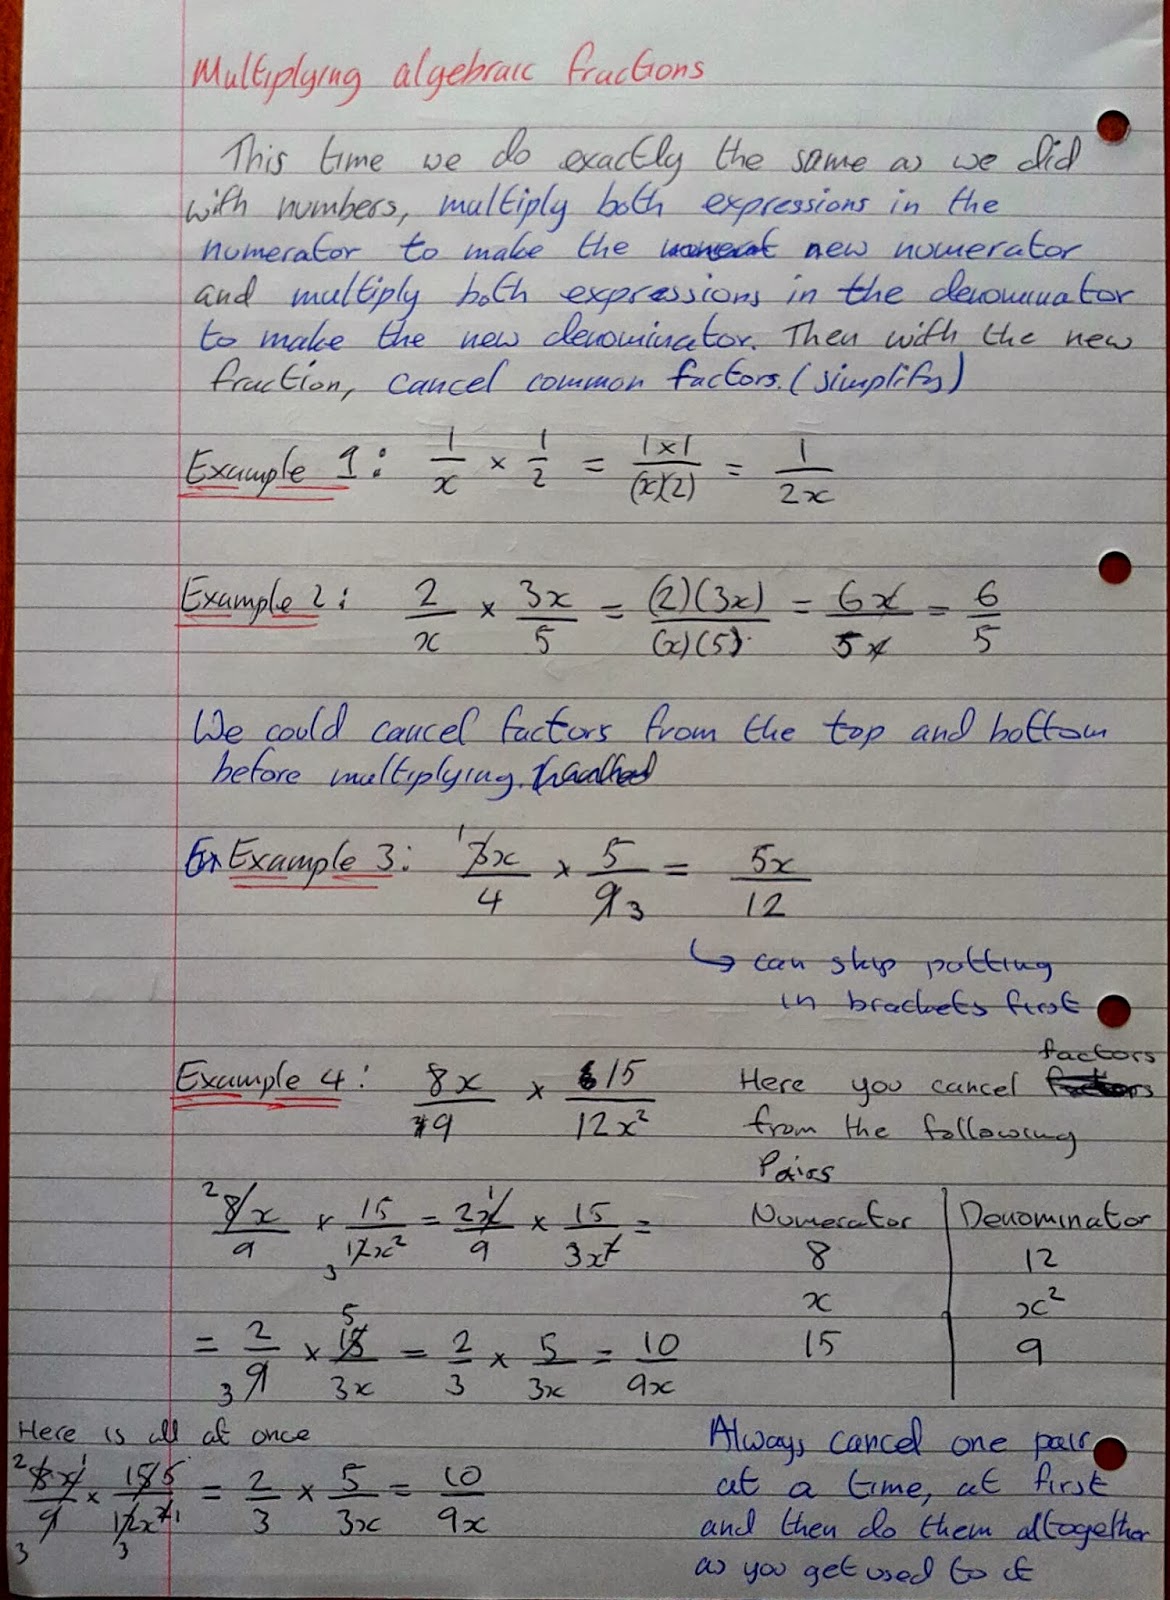 Multiplying algebraic fractions
This time we do exactly the same as we did
with numbers, multiply both expressions in the
numerator to make the new numerator
and multiply both expressions in the denominator
to make the new denominator. Then with the new
fraction, cancel common factors. (simplify)
Example 1: 1/x × 1/2 = 1×1/(x)(2) = 1/2x
Example 2: 2/x × 3x/5 = (2)(3x)/(x)(5) = 6x/5x = 6/5
We could cancel factors from the top and bottom
before multiplying.
Ex Example 3: ¹3x/4 × 5/9 3 = 5x/12
↳ can skip putting
in brackets first
Example 4: 8x/9 × 15/12x²
Here you cancel factors
from the following
Pairs
2 8x/9 × 15/3 12x² = 2x 1/9 × 15/3x² =
= 2/3 9 × 5 15/3x = 2/3 × 5/3x = 10/9x
Numerator | Denominator
8 | 12
x | x²
15 | 9
Here is all at once
2 8x 1/9 3 × 15 5/12x² 1 3 = 2/3 × 5/3x = 10/9x
Always cancel one pair
at a time, at first
and then do them altogether
as you get used to it